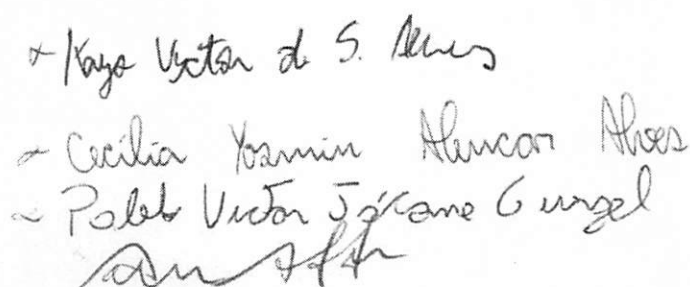 Kayo Victor de S. Alves
Cecilia Yasmin Alencar Alves
Pablo Victor Jácome Gurgel